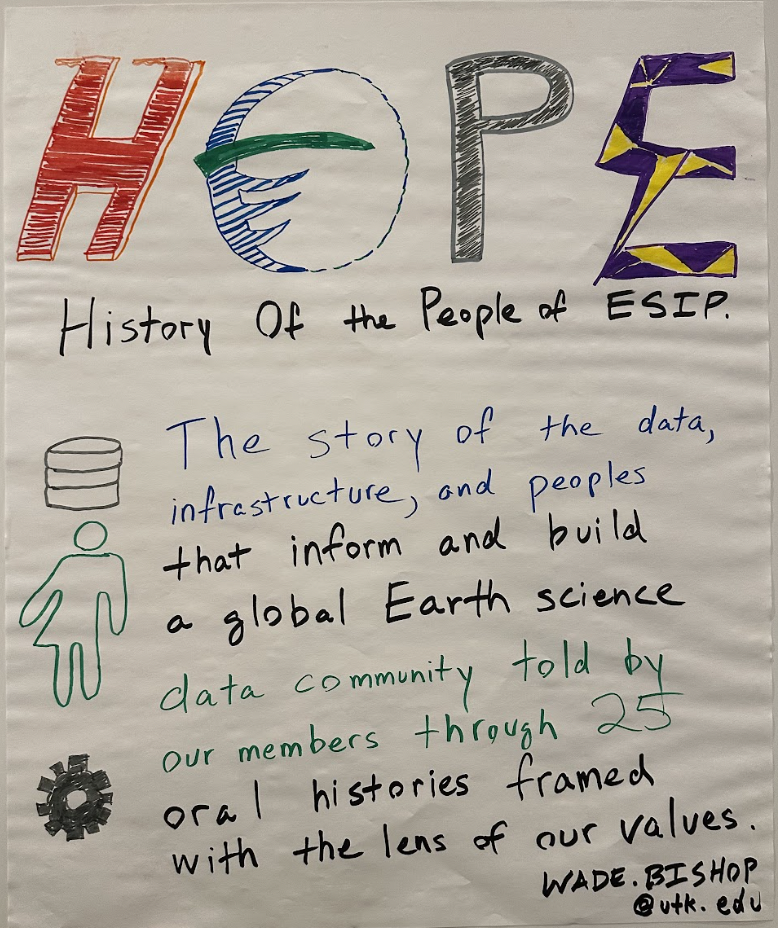 HOPE
History Of the People of ESIP.
The story of the data,
infrastructure, and peoples
that inform and build
a global Earth science
data community told by
our members through 25
oral histories framed
with the lens of our values.
WADE.BISHOP
@utk.edu